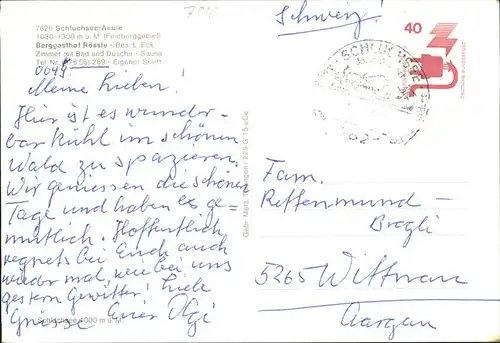 7826 Schluchsee-Aeule
1030-1300 m ü. M. (Feldberggebiet)
Berggasthof Rössle - Bes. L. Eck
Zimmer mit Bad und Dusche - Sauna
Tel. Nr. (0 76 56) 289 - Eigener Skilift
0049
Meine Lieben!
Hier ist es wunder-
bar kühl im schönen
Wald zu spazieren.
Wir geniessen die schönen
Tage und haben es ge=
mütlich. Hoffentlich
regnets bei Euch auch
wieder mal, wie bei uns
gestern Gewitter! Viele
Grüsse Eure Olgi
Schluchsee 1000 m ü. M.
Gebr. Metz, Tübingen
Schweiz!
SCHLUCHSEE
40
DEUTSCHE BUNDESPOST
Fam.
Reffenmund-
Brogli
5265 Wittnau
Aargau